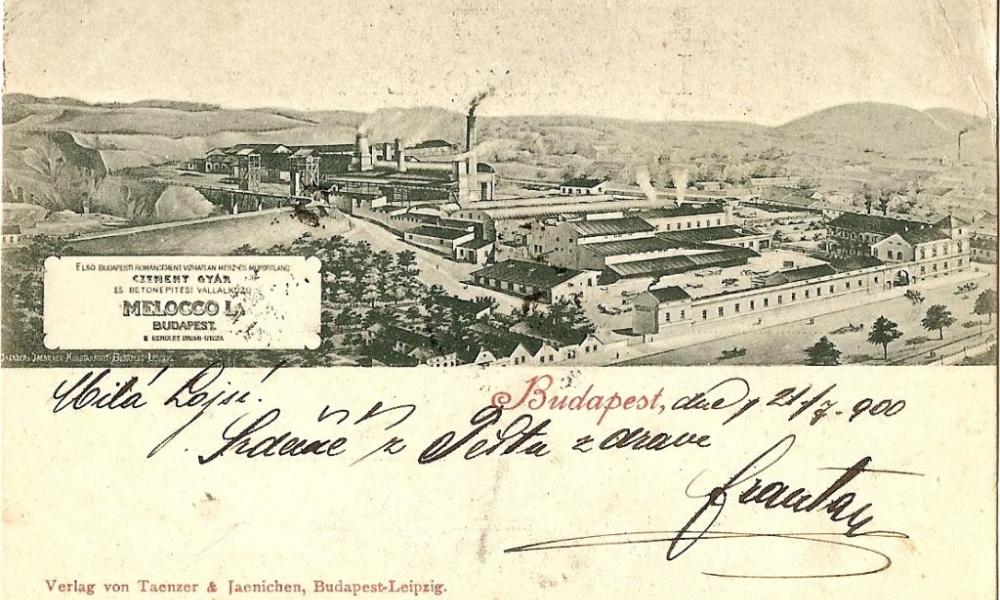 ELSŐ BUDAPESTI ROMANCEMENT-VIZHATLAN MÉSZ-ÉS MŰPORTLAND
CZEMENT GYÁR
ÉS BETONÉPITÉSI VÁLLALKOZÓ
MELOCCO
BUDAPEST.
KERÜLET
TAENZER & JAENICHEN BUDAPEST-LEIPZIG.
Milá Lojsi!
Budapest, dne 21/7 900
Srdečně z Pešťa zdraví
Frantan
Verlag von Taenzer & Jaenichen, Budapest-Leipzig.